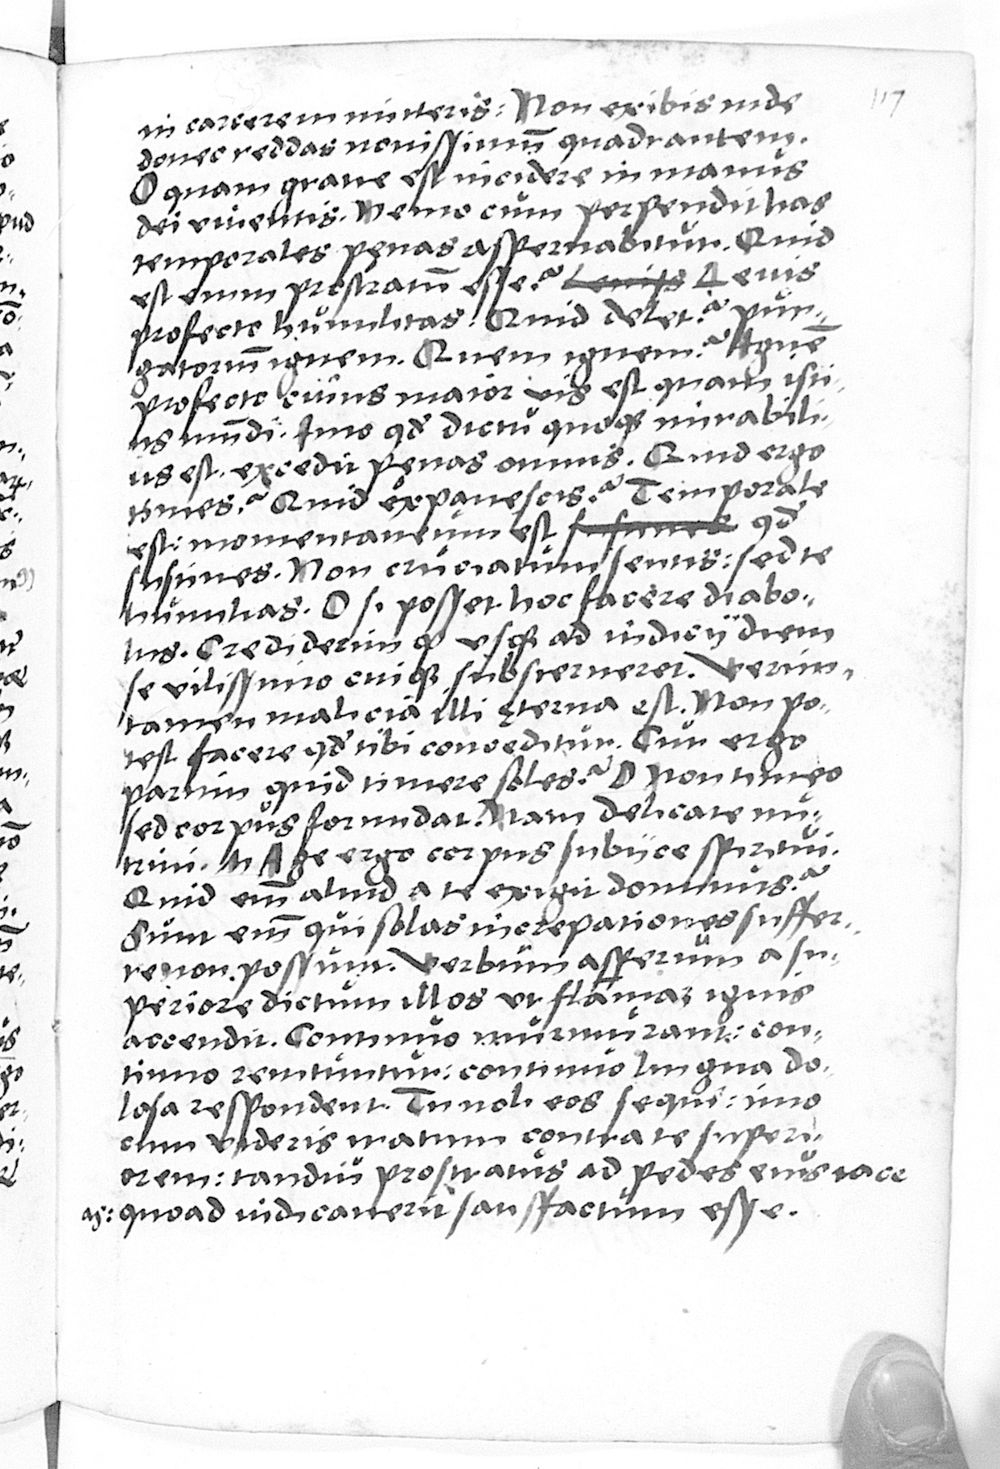 117
in carcerem mitteris: Non exibis inde
donec reddas nouissimū quadrantem.
O quam graue est incidere in manus
dei viuentis. Nemo cum perpendit has
temporales penas aspernabitur. Quid
est enim prostratū esse? Leuis
profecto humilitas: Quid delet? pur-
gatoriū ignem. Quem ignem? Ignē
profecto cuius maior vis est quam isti-
us mūdi. Imo qđ dictu quoqꝫ mirabili-
us est, excedit penas omnis. Quid ergo
times? Quid expauescis? Temporale
est: momentaneum est qđ
sustines. Non cruciatum sentis: sed te
humilias. O si posset hoc facere diabo-
lus. Crediderim ꝙ vsqꝫ ad iudicij diem
se vilissimo cuiqꝫ substerneret. Verun-
tamen malicia illi ęterna est. Non po-
test facere qđ tibi conceditur. Cur ergo
parum quid timere soles? O Non timeo
sed corpus formidat. Nam delicate nu-
triui. Age ergo corpus subijce spiritui.
Quid em̄ aliud a te exigit dominus?
Sunt em̄ qui solas increpationes suffer-
re non possunt. Verbum asperum a su-
periore dictum illos vt flāmaz ignis
accendit. Continuo murmurant: con-
tinuo remituntur: continuo lingua do-
losa respondent. Tu noli eos sequi: imo
cum videris iratum contra te superi-
orem: tandiu prostratus ad pedes eius iace
as: quoad iudicauerit satisfactum esse.